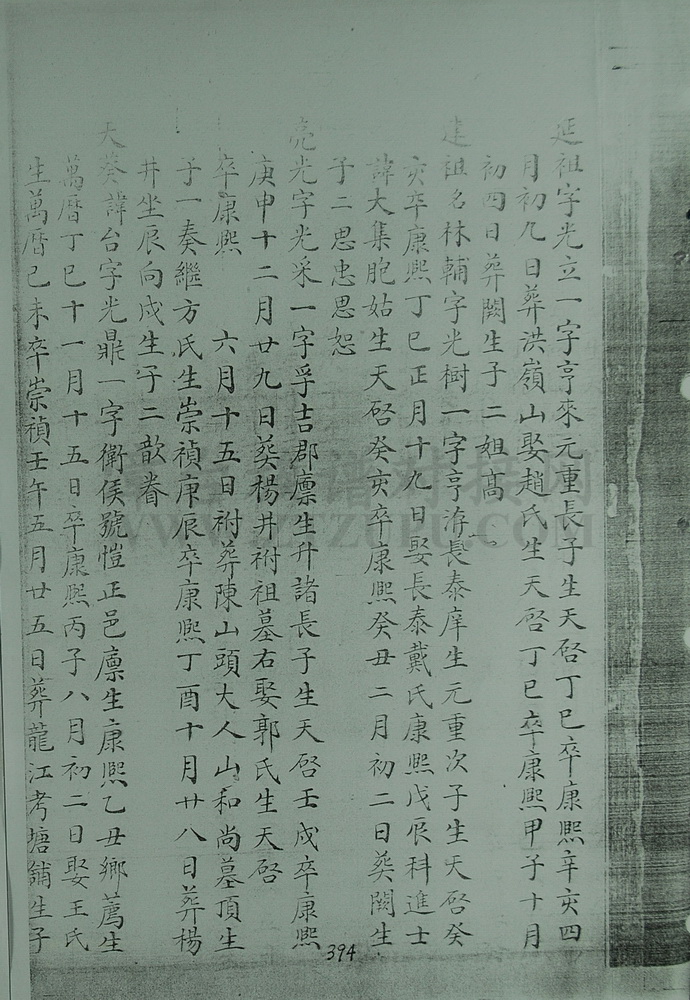 延祖字光立一字亨來元重長子生天啓丁巳卒康熙辛亥四
月初九日葬洪嶺山娶趙氏生天啓丁巳卒康熙甲子十月
初四日葬闕生子二姐高
建祖名林輔字光樹一字亨洊長泰庠生元重次子生天啓癸
亥卒康熙丁巳正月十九日娶長泰戴氏康熙戊辰科進士
諱大集胞姑生天啓癸亥卒康熙癸丑二月初二日葬闕生
子二思忠思恕
亮光字光采一字孚吉郡廩生升諸長子生天啓壬戌卒康熙
庚申十二月廿九日葬楊井祔祖墓右娶郭氏生天啓
卒康熙 六月十五日祔葬陳山頭大人山和尚墓頂生
子一奏繼方氏生崇禎庚辰卒康熙丁酉十月廿八日葬楊
井坐辰向戌生子二歆眷
天葵諱台字光鼎一字衛侯號愷正邑廩生康熙乙丑鄉薦生
萬曆丁巳十一月十五日卒康熙丙子八月初二日娶王氏
生萬曆己未卒崇禎壬午五月廿五日葬龍江考塘鋪生子
394